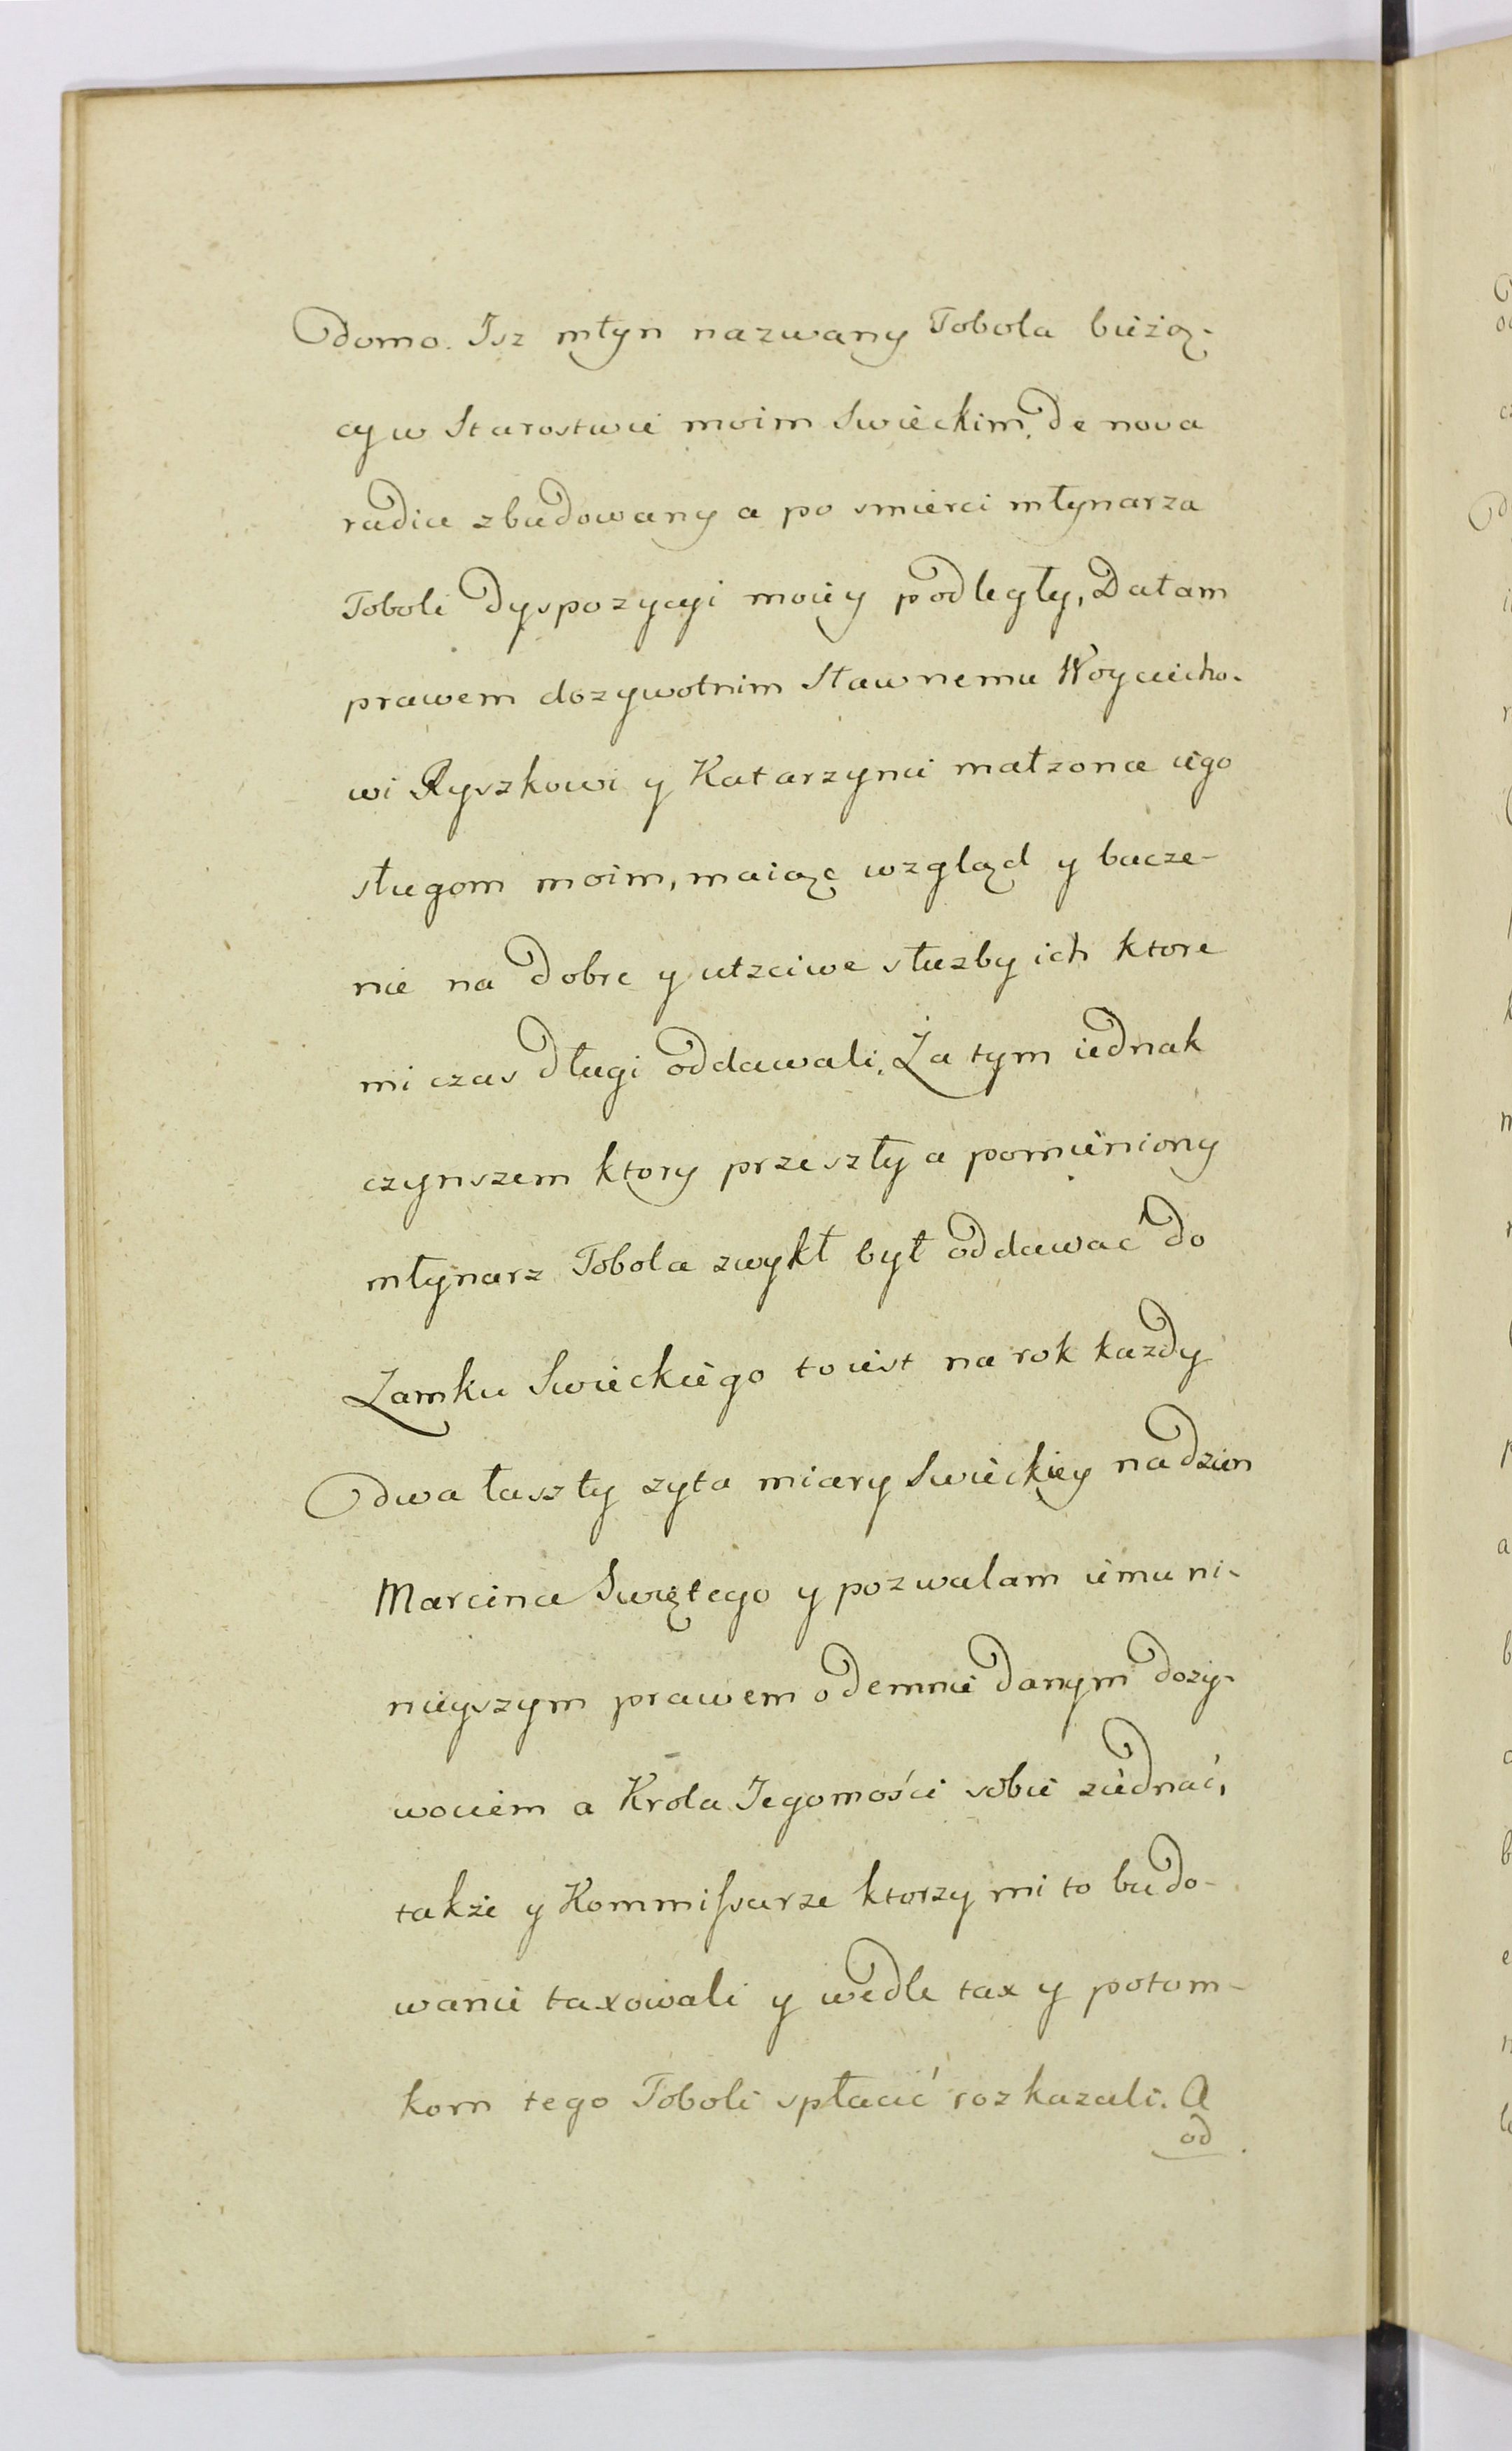 domo. Isz młyn nazwany Tobola bieżą-
cy w Starostwie moim Swieckim, de nova
radice zbudowany a po smierci młynarza
Toboli dyspozycyi moiey podległy, Dałam
prawem dozywotnim Sławnemu Woyciecho-
wi Ryszkowi y Katarzynie małzonce iego
sługom moim, maiąc wzgląd y bacze-
nie na dobre y utzciwe słuzby ich ktore
mi czas długi oddawali. Za tym iednak
czynszem ktory przeszły a pomieniony
młynarz Tobola zwykł był oddawać do
Zamku Swieckiego to iest na rok kazdy
dwa łaszty zyta miary Swieckiey na dzien
Marcina Swiętego y pozwalam iemu ni-
nieyszym prawem odemnie danym dozy-
wociem a Krola Jegomości sobie ziednać,
także y Kommissarze ktorzy mi to budo-
wanie taxowali y wedle tax y potom-
kom tego Toboli spłacić rozkazali. A
od